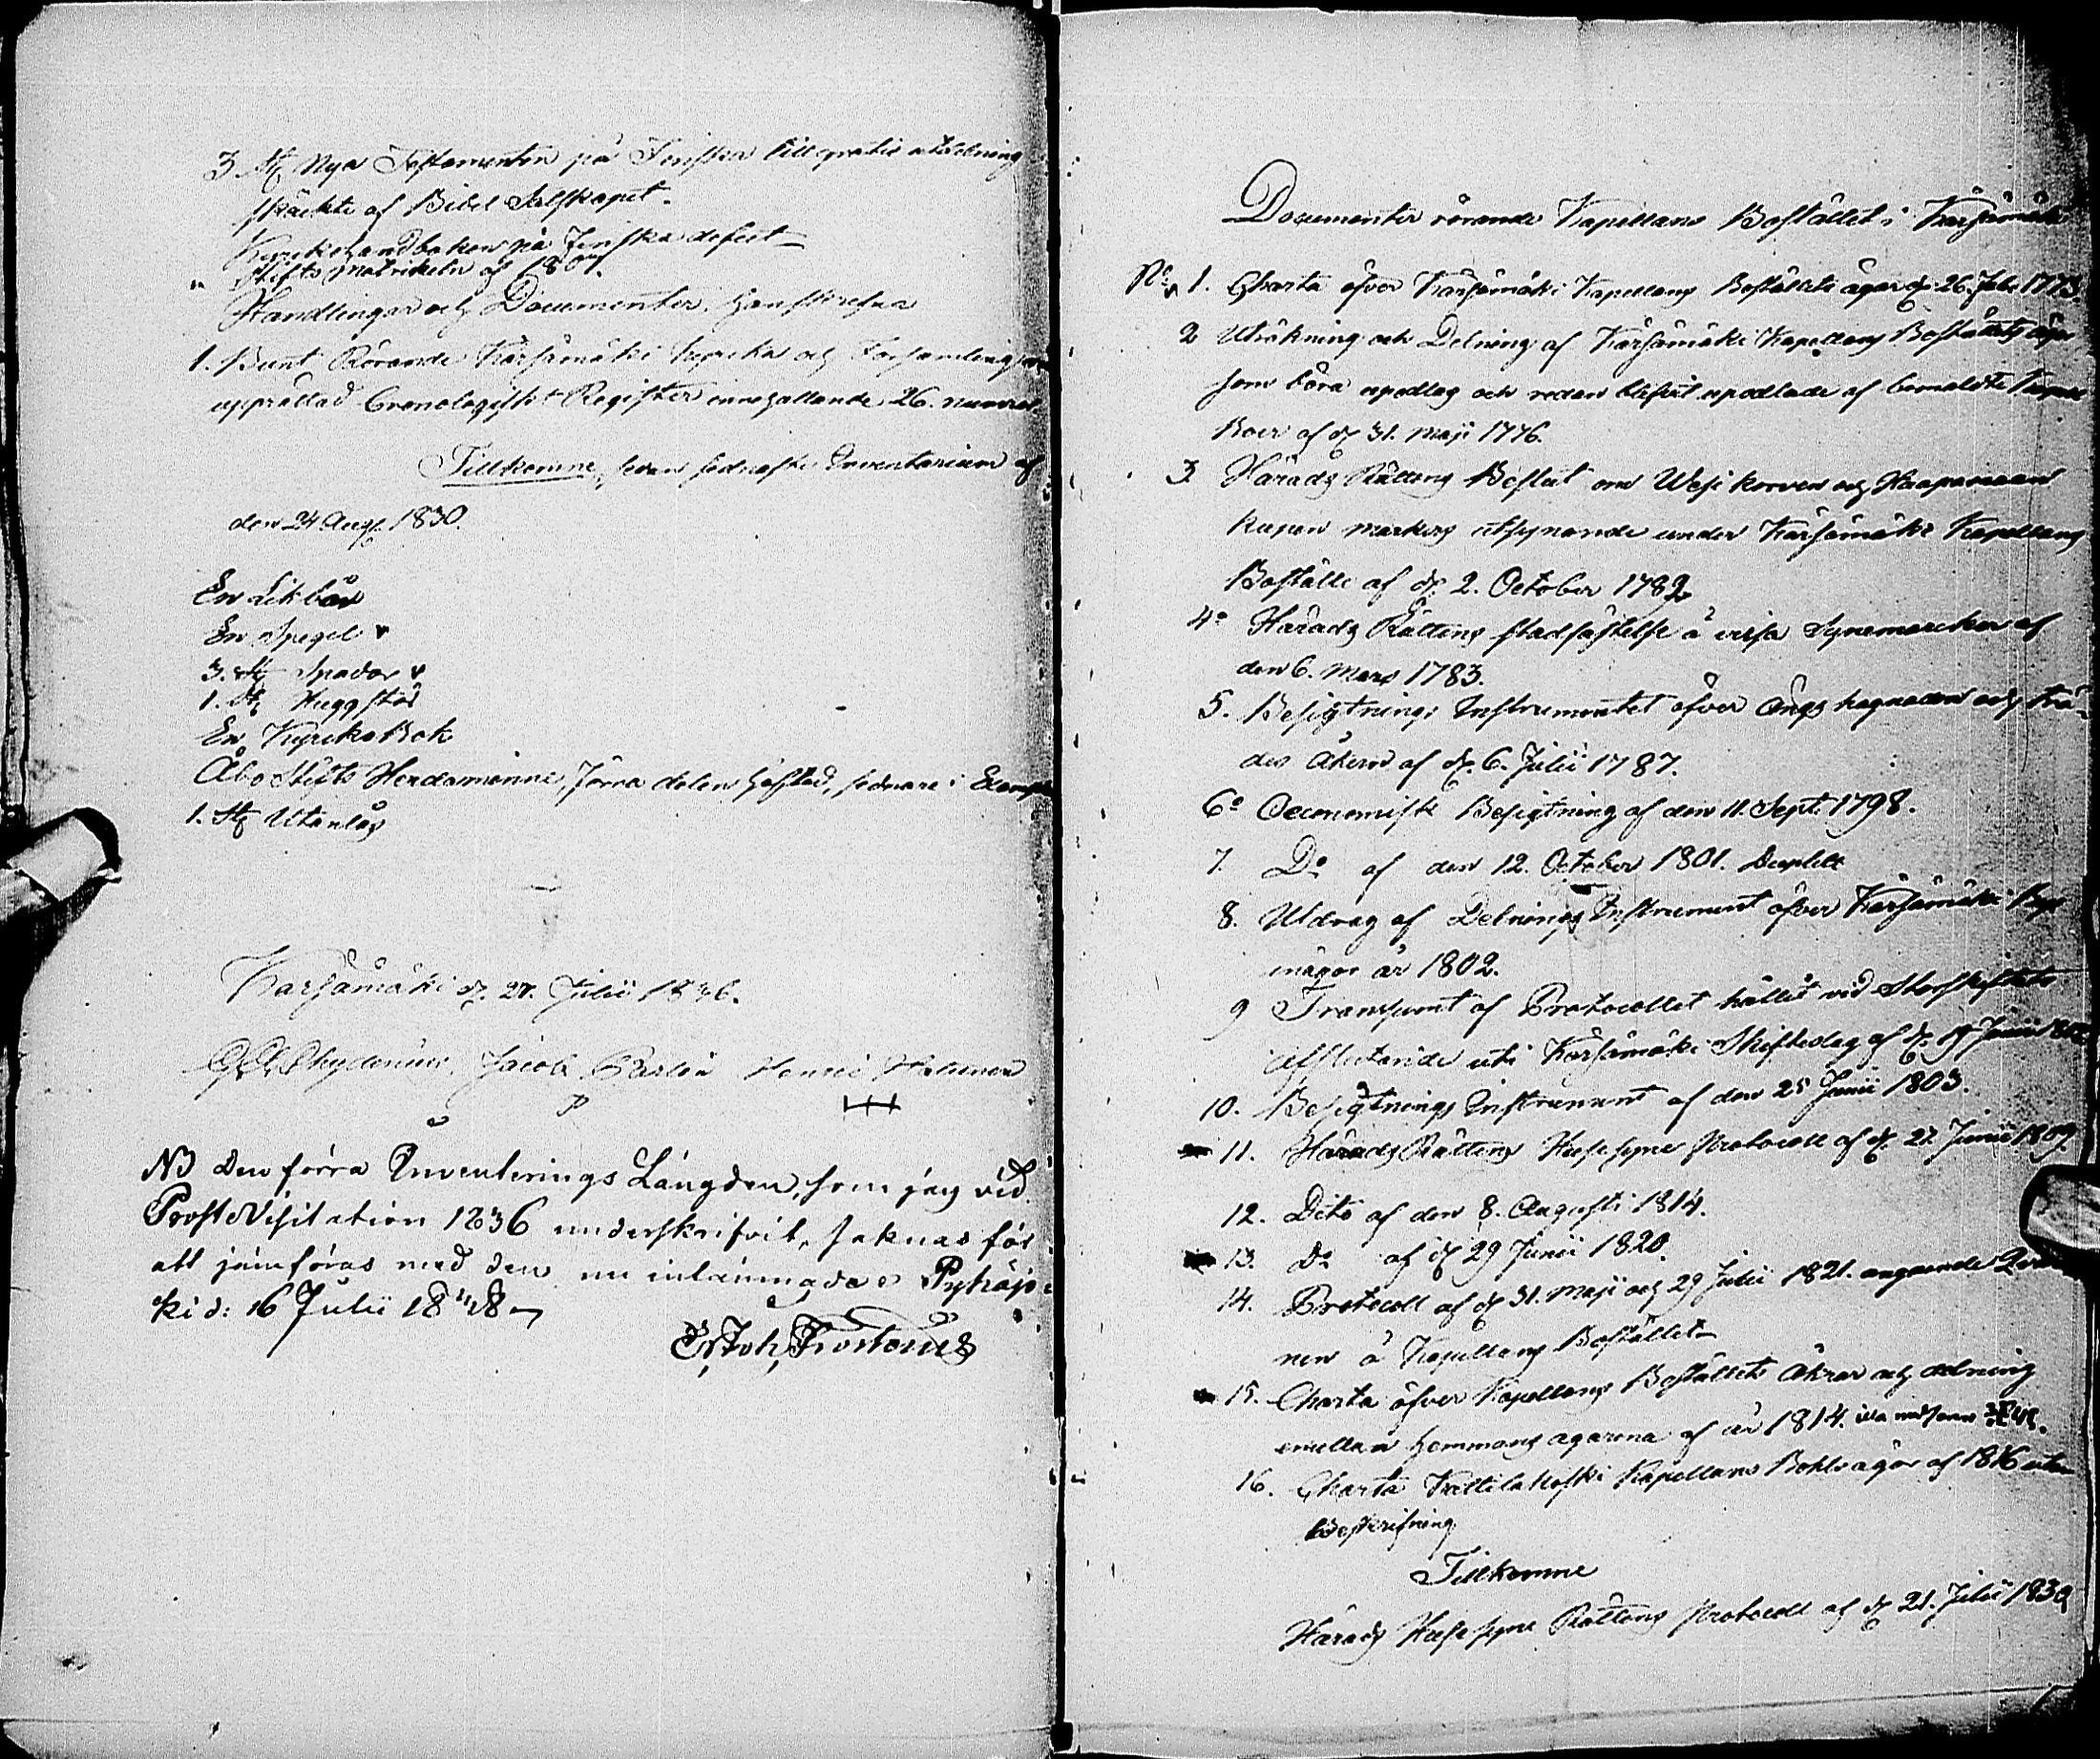 3 st Nya Testamenten på Finska till gratis utdelning
skänkte af Bibel Selskapet.
Kyrkohandboken på Finska defect
" Stifts Matrikeln af 180
Handlingar och Documenter, Handskrefna
1. Bunt Rörande Kärsämäki Kyrka och Församling
upprättad Cronologiskt Register innehållande 26. numror
Tillkomne, sedan sednaste Inventarium af
den 24 Aug. 1830.
En Likbår
En Spegel
3. st Spador
1. st Huggstål
En Kyrko Bok
Åbo Stifts Herdaminne, förra delen häftad, sednare i
1. st Utanlås
Kärsämäki d. 27. Julii 1836.
Chydenius, Jacob Henric
N3 Den förra Inventerings Längden, som jag vid
Prost Visitation 1836 underskrifvit, saknas för
att jämföras med den nu inlämnade Pyhäjo
ki d: 16 Julii 1848
Er. Joh. Frosterus
Documenter rörande Kapellans Bostället i Kärsämäki
No. 1. Charta öfver Kärsämäki Kapellans Boställets ägor d. 26. Feb. 1773.
2 Uträkning och Delning af Kärsämäki Kapellans Boställets ägor
som böra upodlas och redan blifvit upodlade af bemäldte
Boer af d. 31. Maji 1776.
3. Härads Rättens Beslut om Wesikorven och Haapamaan
kupan markers afsynande under Kärsämäki Kapellans
Boställe af d. 2. October 1782
4o Härads Rättens stadfästelse å vissa Synemärcken af
den 6. Mars 1783.
5. Besigtnings Instrumentet öfver Ängs hagnaden och trä-
des Åkern af d. 6. Julii 1787.
6o Oeconomisk Besigtning af den 11. Sept. 1798.
7. Do af den 12. October 1801. Duplett
8. Utdrag af Delnings Instrument öfver Kärsämäki Bys
inägor år 1802.
9 Transsumt af Protocollet hållit vid Storskiftets
afslutande uti Kärsämäki Skifteslag af d. 19 Junii
10. Besigtnings Instrument af den 25 Junii 1803.
11. Härads Rättens Husesyne Protocoll af d. 27 Junii 1809.
12. Dito af den 8. Augusti 1814.
13. Do af d 29 Junii 1820.
14. Protocoll af d 31. Maji och 29 Julii 1821. angående
nen å Kapellans Bostället
15. Charta öfver Kapellans Boställets Åkrar och delning
emellan Hemmans ägarena af år 1814.
16. Charta Kattilakoski Kapellans Bohls ägor af 1816 utan
Beskrifning
Tillkomne
Härads Husesyne Rättens Protocoll af d 21. Julii 1830